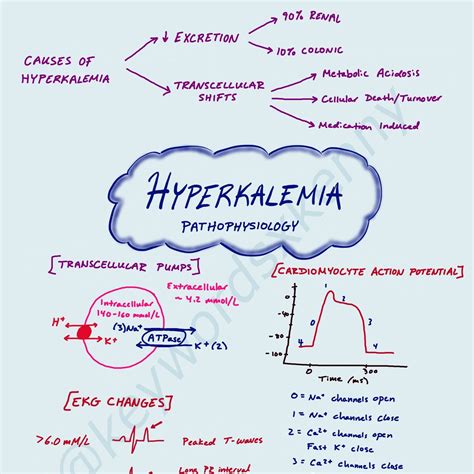 CAUSES OF
HYPERKALEMIA
↓ EXCRETION
90% RENAL
10% COLONIC
TRANSCELLULAR
SHIFTS
Metabolic Acidosis
Cellular Death/Turnover
Medication Induced
HYPERKALEMIA
PATHOPHYSIOLOGY
[TRANSCELLULAR PUMPS]
Intracellular
140-160 mmol/L
Extracellular
~ 4.2 mmol/L
H+
K+
(3)Na+
ATPase
K+(2)
[CARDIOMYOCYTE ACTION POTENTIAL]
0
-80
-100
0
1
2
3
4
4
0
300
Time (ms)
0 = Na+ channels open
1 = Na+ channels close
2 = Ca2+ channels open
Fast K+ close
3 = Ca2+ channels close
[EKG CHANGES]
>6.0 mM/L
Peaked T-waves
Long PR interval
@keywordsxkenny